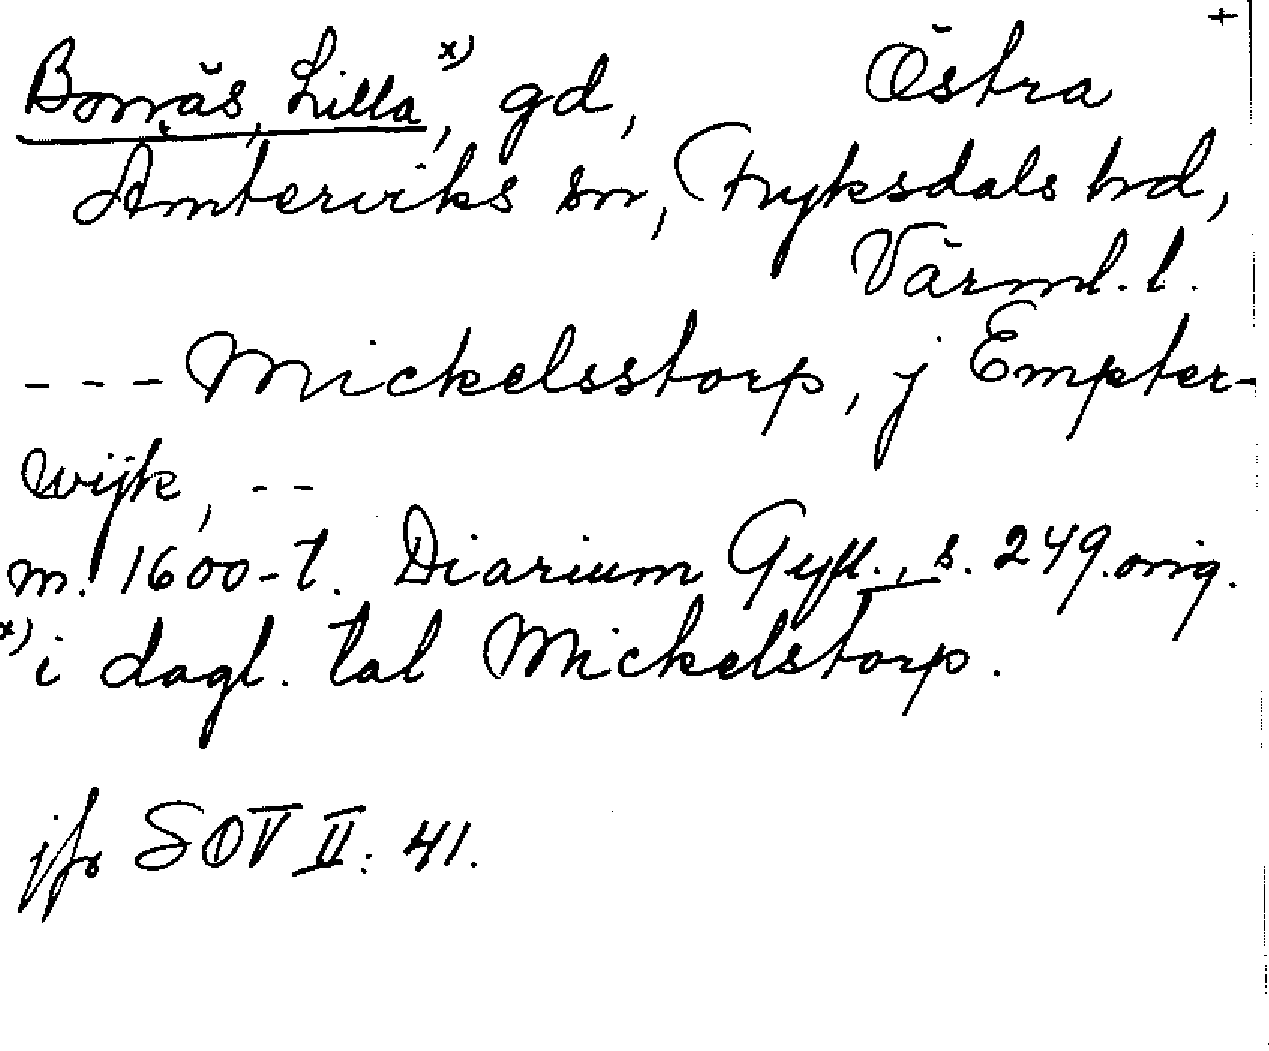 +
Borrås, Lilla x), gd, Östra
Ämterviks sn, Fryksdals hd,
Värml. l.
--- Mickelsstorp, j Empter-
wijk, --
m. 1600-t. Diarium Gyll., s. 249. orig.
x) i dagl. tal Mickelstorp.
jfr SOV II: 41.